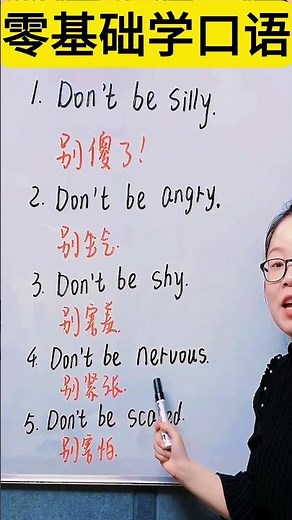 零基础学口语
1. Don't be silly.
别傻了!
2. Don't be angry.
别生气.
3. Don't be shy.
别害羞.
4. Don't be nervous.
别紧张.
5. Don't be scared.
别害怕.